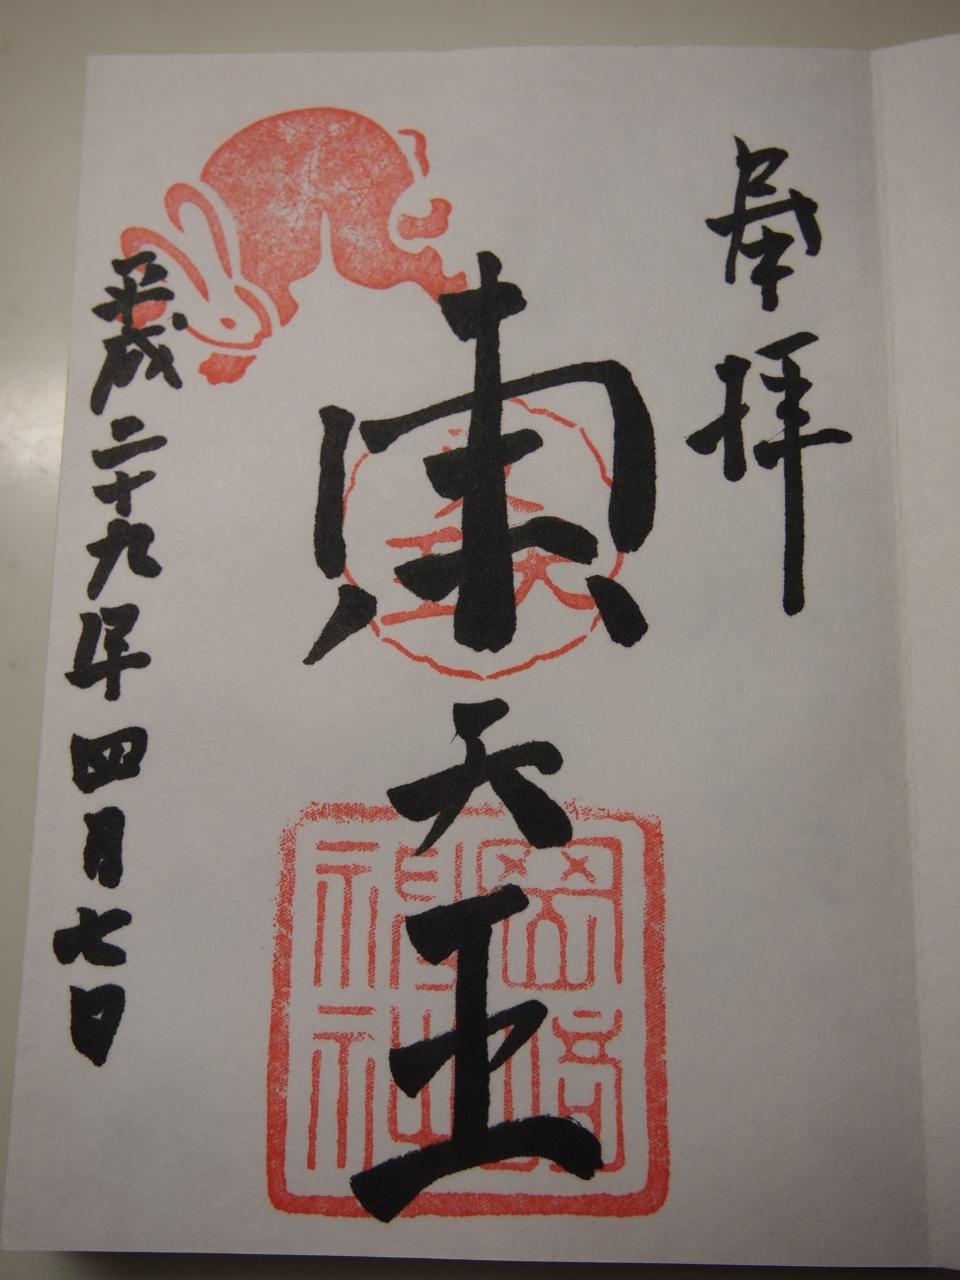 奉拝
東天王
岡崎神社
平成二十九年四月七日